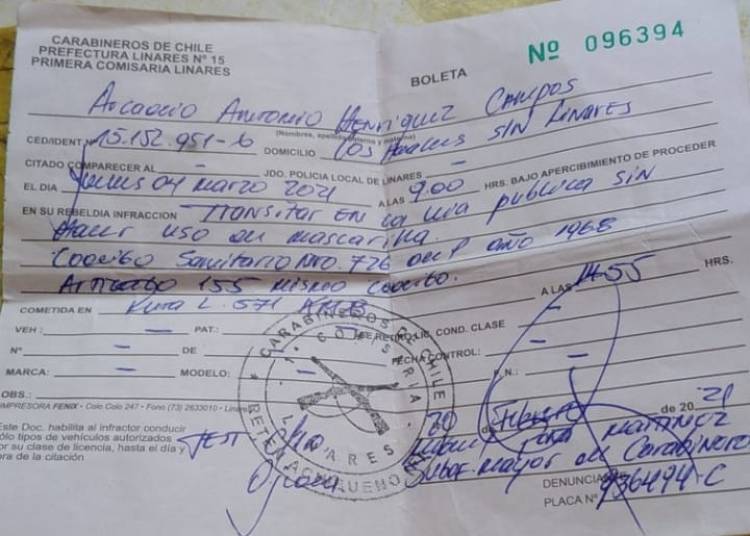 CARABINEROS DE CHILE
PREFECTURA LINARES Nº 15
PRIMERA COMISARIA LINARES
BOLETA
Nº 096394
Antonio Henriquez Campos
(Nombres, apellido paterno y materno)
CED/IDENT Nº 15.152.951-6 DOMICILIO Los SIN LINARES
CITADO COMPARECER AL — JDO. POLICIA LOCAL DE LINARES —
EL DIA Jueves 04 marzo 2021 A LAS 9.00 HRS. BAJO APERCIBIMIENTO DE PROCEDER
EN SU REBELDIA INFRACCION Transitar EN la via publica SIN
Hacer uso de mascarilla.
Codigo Sanitario Nro. 726 del año 1968
Articulo 155 mismo Codigo.
A LAS 14:55 HRS.
COMETIDA EN L. 571
VEH: — PAT: — SE RETIRO LIC. COND. CLASE —
Nº — DE — FECHA CONTROL: —
MARCA: — MODELO: — R.N.: —
OBS.:
IMPRESORA FENIX • Colo Colo 247 • Fono (73) 2633010 • Linares
CARABINEROS DE CHILE
1. COMISARIA
LINARES
RETEN ACHIBUENO
20 de Febrero de 2021
Este Doc. habilita al infractor conducir
sólo tipos de vehículos autorizados
por su clase de licencia, hasta el día y
hora de la citación
Martinez
Subof. mayor de Carabineros
DENUNCIA
PLACA Nº 936494-C